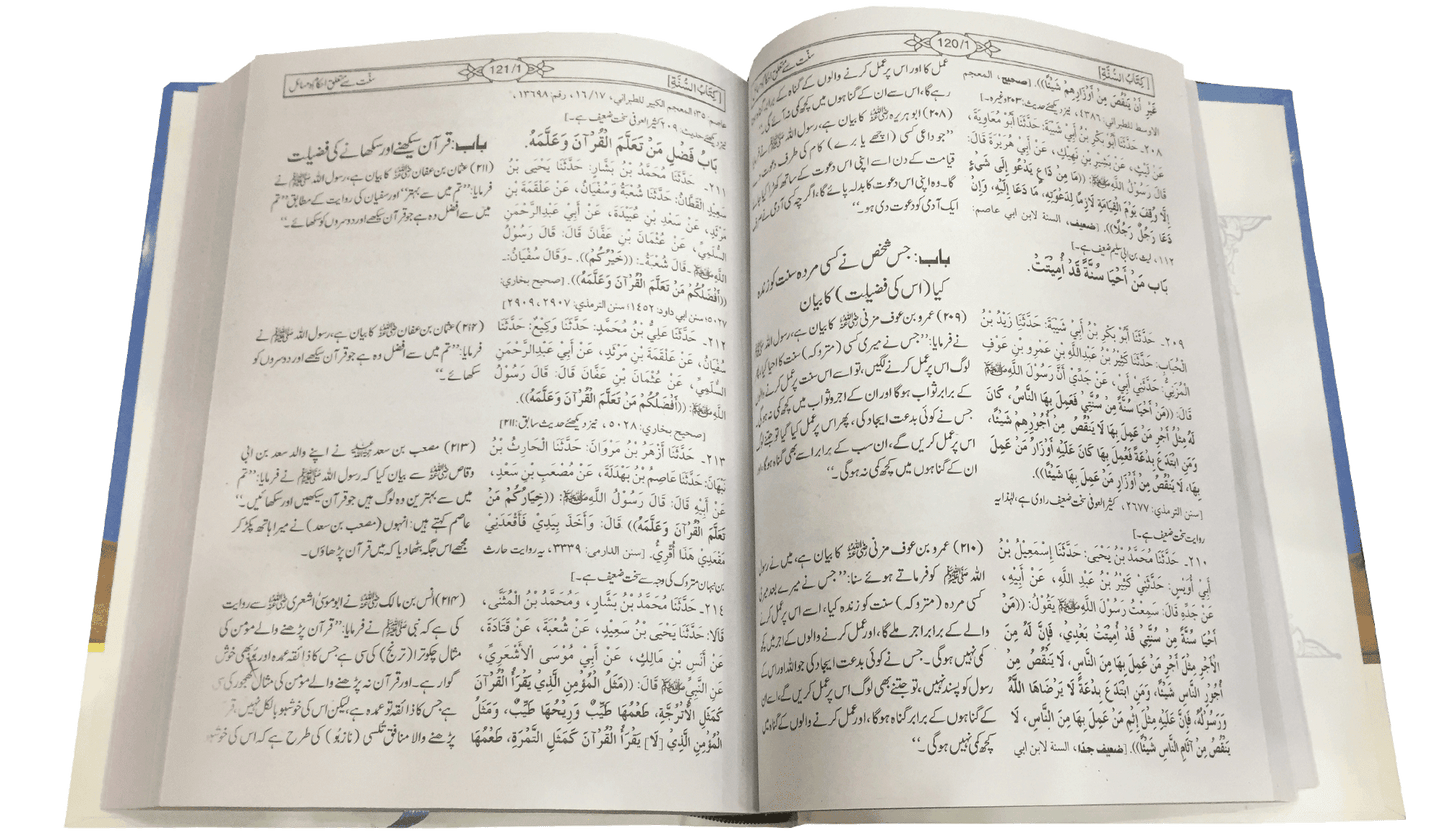 [كِتَابُ السُّنَّةِ]
120/1
سنت سے متعلق احکام و مسائل
غَيْرِ أَنْ يَنْقُصَ مِنْ أَوْزَارِهِمْ شَيْئًا)). [صحیح، المعجم
الاوسط للطبرانی: ۴۳۸۶، نیز دیکھئے حدیث: ۲۰۳ وغیرہ۔]
۲۰۸۔ حَدَّثَنَا أَبُو بَكْرِ بْنُ أَبِي شَيْبَةَ: حَدَّثَنَا أَبُو مُعَاوِيَةَ،
عَنْ لَيْثٍ، عَنْ بَشِيرِ بْنِ نَهِيكٍ، عَنْ أَبِي هُرَيْرَةَ قَالَ:
قَالَ رَسُولُ اللَّهِ ﷺ: ((مَا مِنْ دَاعٍ يَدْعُو إِلَى شَيْءٍ
إِلَّا وُقِفَ يَوْمَ الْقِيَامَةِ لَازِمًا لِدَعْوَتِهِ، مَا دَعَا إِلَيْهِ، وَإِنْ
دَعَا رَجُلٌ رَجُلًا)). [ضعیف، السنة لابن ابی عاصم:
۱۱۲، لیث بن ابی سلیم ضعیف ہے۔]
عمل کا اور اس پر عمل کرنے والوں کے گناہ کے برابر
رہے گا، اس سے ان کے گناہوں میں کچھ کمی نہ آئے گی۔‘‘
(۲۰۸) ابو ہریرہ ؓ کا بیان ہے، رسول اللہ ﷺ نے
’’جو داعی کسی (اچھے یا برے) کام کی طرف دعوت
قیامت کے دن اسے اپنی اس دعوت کے ساتھ کھڑا کیا جائے
گا۔ وہ اپنی اس دعوت کا بدلہ پائے گا، اگرچہ کسی آدمی نے
ایک آدمی کو دعوت دی ہو۔‘‘
بَاب مَنْ أَحْيَا سُنَّةً قَدْ أُمِيتَتْ.
باب: جس شخص نے کسی مردہ سنت کو زندہ
کیا (اس کی فضیلت) کا بیان
۲۰۹۔ حَدَّثَنَا أَبُو بَكْرِ بْنُ أَبِي شَيْبَةَ: حَدَّثَنَا زَيْدُ بْنُ
الْحُبَابِ: حَدَّثَنَا كَثِيرُ بْنُ عَبْدِاللَّهِ بْنِ عَمْرِو بْنِ عَوْفٍ
الْمُزَنِيُّ: حَدَّثَنِي أَبِي، عَنْ جَدِّي أَنَّ رَسُولَ اللَّهِ ﷺ
قَالَ: ((مَنْ أَحْيَا سُنَّةً مِنْ سُنَّتِي فَعَمِلَ بِهَا النَّاسُ، كَانَ
لَهُ مِثْلُ أَجْرِ مَنْ عَمِلَ بِهَا لَا يَنْقُصُ مِنْ أُجُورِهِمْ شَيْئًا،
وَمَنِ ابْتَدَعَ بِدْعَةً فَعُمِلَ بِهَا كَانَ عَلَيْهِ أَوْزَارُ مَنْ عَمِلَ
بِهَا، لَا يَنْقُصُ مِنْ أَوْزَارِ مَنْ عَمِلَ بِهَا شَيْئًا)).
[سنن الترمذی: ۲۶۷۷، کثیر العوفی سخت ضعیف راوی ہے، لہٰذا یہ
روایت ضعیف ہے۔]
(۲۰۹) عمرو بن عوف مزنی ؓ کا بیان ہے، رسول اللہ ﷺ
نے فرمایا: ’’جس نے میری کسی (متروکہ) سنت کا احیا کیا،
لوگ اس پر عمل کرنے لگیں، تو اسے اس سنت پر عمل کرنے والوں
کے برابر ثواب ہوگا اور ان کے اجر و ثواب میں کچھ کمی نہ ہوگی
جس نے کوئی بدعت ایجاد کی، پھر اس پر عمل کیا گیا تو جتنے لوگ
اس پر عمل کریں گے، ان سب کے برابر اسے بھی گناہ ہوگا، اور
ان کے گناہوں میں کچھ کمی نہ ہوگی۔‘‘
۲۱۰۔ حَدَّثَنَا مُحَمَّدُ بْنُ يَحْيَى: حَدَّثَنَا إِسْمَعِيلُ بْنُ
أَبِي أُوَيْسٍ: حَدَّثَنِي كَثِيرُ بْنُ عَبْدِ اللَّهِ، عَنْ أَبِيهِ،
عَنْ جَدِّهِ قَالَ: سَمِعْتُ رَسُولَ اللَّهِ ﷺ يَقُولُ: ((مَنْ
أَحْيَا سُنَّةً مِنْ سُنَّتِي قَدْ أُمِيتَتْ بَعْدِي، فَإِنَّ لَهُ مِنَ
الْأَجْرِ مِثْلَ أَجْرِ مَنْ عَمِلَ بِهَا مِنَ النَّاسِ، لَا يَنْقُصُ مِنْ
أُجُورِ النَّاسِ شَيْئًا، وَمَنِ ابْتَدَعَ بِدْعَةً لَا يَرْضَاهَا اللَّهُ
وَرَسُولُهُ، فَإِنَّ عَلَيْهِ مِثْلَ إِثْمِ مَنْ عَمِلَ بِهَا مِنَ النَّاسِ، لَا
يَنْقُصُ مِنْ آثَامِ النَّاسِ شَيْئًا)). [ضعیف جدًا، السنة لابن ابی
(۲۱۰) عمرو بن عوف مزنی ؓ کا بیان ہے، میں نے رسول
اللہ ﷺ کو فرماتے ہوئے سنا: ’’جس نے میرے بعد میری
کسی مردہ (متروکہ) سنت کو زندہ کیا، اسے اس پر عمل کرنے
والے کے برابر اجر ملے گا، اور عمل کرنے والوں کے اجر میں کچھ
کمی نہیں ہوگی۔ جس نے کوئی بدعت ایجاد کی جو اللہ اور اس کے
رسول کو پسند نہیں، تو جتنے بھی لوگ اس پر عمل کریں گے، اسے ان
کے گناہوں کے برابر گناہ ہوگا، اور عمل کرنے والوں کے گناہ میں
کچھ کمی نہیں ہوگی۔‘‘
[كِتَابُ السُّنَّةِ]
121/1
سنت سے متعلق احکام و مسائل
عاصم: ۳۵؛ المعجم الكبير للطبراني، ۱۶/۱۷، رقم: ۱۳۶۹۸،
نیز دیکھئے حدیث: ۲۰۹ کثیر العوفی سخت ضعیف ہے۔]
بَابُ فَضْلِ مَنْ تَعَلَّمَ الْقُرْآنَ وَعَلَّمَهُ.
باب: قرآن سیکھنے اور سکھانے کی فضیلت
۲۱۱۔ حَدَّثَنَا مُحَمَّدُ بْنُ بَشَّارٍ: حَدَّثَنَا يَحْيَى بْنُ
سَعِيدٍ الْقَطَّانُ: حَدَّثَنَا شُعْبَةُ وَسُفْيَانُ، عَنْ عَلْقَمَةَ بْنِ
مَرْثَدٍ، عَنْ سَعْدِ بْنِ عُبَيْدَةَ، عَنْ أَبِي عَبْدِالرَّحْمَنِ
السُّلَمِيِّ، عَنْ عُثْمَانَ بْنِ عَفَّانَ قَالَ: قَالَ رَسُولُ
اللَّهِ ﷺ ـ قَالَ شُعْبَةُ ـ: ((خَيْرُكُمْ)). ـ وَقَالَ سُفْيَانُ: ـ
((أَفْضَلُكُمْ مَنْ تَعَلَّمَ الْقُرْآنَ وَعَلَّمَهُ)). [صحیح بخاری:
۵۰۲۷؛ سنن ابی داود: ۱۴۵۲؛ سنن الترمذی: ۲۹۰۷، ۲۹۰۹]
(۲۱۱) عثمان بن عفان ؓ کا بیان ہے، رسول اللہ ﷺ نے
فرمایا: ’’تم میں سے بہتر‘‘ اور سفیان کی روایت کے مطابق ’’تم
میں سے افضل وہ ہے جو قرآن سیکھے اور دوسروں کو سکھائے۔‘‘
۲۱۲۔ حَدَّثَنَا عَلِيُّ بْنُ مُحَمَّدٍ: حَدَّثَنَا وَكِيعٌ: حَدَّثَنَا
سُفْيَانُ، عَنْ عَلْقَمَةَ بْنِ مَرْثَدٍ، عَنْ أَبِي عَبْدِالرَّحْمَنِ
السُّلَمِيِّ، عَنْ عُثْمَانَ بْنِ عَفَّانَ قَالَ: قَالَ رَسُولُ
اللَّهِ ﷺ: ((أَفْضَلُكُمْ مَنْ تَعَلَّمَ الْقُرْآنَ وَعَلَّمَهُ)).
[صحیح بخاری: ۵۰۲۸، نیز دیکھئے حدیث سابق: ۲۱۱]
(۲۱۲) عثمان بن عفان ؓ کا بیان ہے، رسول اللہ ﷺ نے
فرمایا: ’’تم میں سے افضل وہ ہے جو قرآن سیکھے اور دوسروں کو
سکھائے۔‘‘
۲۱۳۔ حَدَّثَنَا أَزْهَرُ بْنُ مَرْوَانَ: حَدَّثَنَا الْحَارِثُ بْنُ
نَبْهَانَ: حَدَّثَنَا عَاصِمُ بْنُ بَهْدَلَةَ، عَنْ مُصْعَبِ بْنِ سَعْدٍ،
عَنْ أَبِيهِ قَالَ: قَالَ رَسُولُ اللَّهِ ﷺ: ((خِيَارُكُمْ مَنْ
تَعَلَّمَ الْقُرْآنَ وَعَلَّمَهُ)) قَالَ: وَأَخَذَ بِيَدِي فَأَقْعَدَنِي
مَقْعَدِي هَذَا أُقْرِئُ. [سنن الدارمی: ۳۳۳۹، یہ روایت حارث
بن نبہان متروک کی وجہ سے سخت ضعیف ہے۔]
(۲۱۳) مصعب بن سعد ؒ نے اپنے والد سعد بن ابی
وقاص ؓ سے بیان کیا کہ رسول اللہ ﷺ نے فرمایا: ’’تم
میں سے بہترین وہ لوگ ہیں جو قرآن سیکھیں اور سکھائیں۔‘‘
عاصم کہتے ہیں: انہوں (مصعب بن سعد) نے میرا ہاتھ پکڑ کر
مجھے اس جگہ بٹھا دیا کہ میں قرآن پڑھاؤں۔
۲۱۴۔ حَدَّثَنَا مُحَمَّدُ بْنُ بَشَّارٍ، وَمُحَمَّدُ بْنُ الْمُثَنَّى،
قَالَا: حَدَّثَنَا يَحْيَى بْنُ سَعِيدٍ، عَنْ شُعْبَةَ، عَنْ قَتَادَةَ،
عَنْ أَنَسِ بْنِ مَالِكٍ، عَنْ أَبِي مُوسَى الْأَشْعَرِيِّ،
عَنِ النَّبِيِّ ﷺ قَالَ: ((مَثَلُ الْمُؤْمِنِ الَّذِي يَقْرَأُ الْقُرْآنَ
كَمَثَلِ الْأُتْرُجَّةِ، طَعْمُهَا طَيِّبٌ وَرِيحُهَا طَيِّبٌ، وَمَثَلُ
الْمُؤْمِنِ الَّذِي [لَا] يَقْرَأُ الْقُرْآنَ كَمَثَلِ التَّمْرَةِ، طَعْمُهَا
(۲۱۴) انس بن مالک ؓ نے ابو موسیٰ اشعری ؓ سے روایت
کی ہے کہ نبی ﷺ نے فرمایا: ’’قرآن پڑھنے والے مؤمن کی
مثال چکوترا (ترنج) کی سی ہے جس کا ذائقہ عمدہ اور بو بھی خوش
گوار ہے۔ اور قرآن نہ پڑھنے والے مؤمن کی مثال کھجور کی سی
ہے جس کا ذائقہ تو عمدہ ہے، لیکن اس کی خوشبو بالکل نہیں،
پڑھنے والا منافق تلسی (نازبو) کی طرح ہے کہ اس کی خوشبو